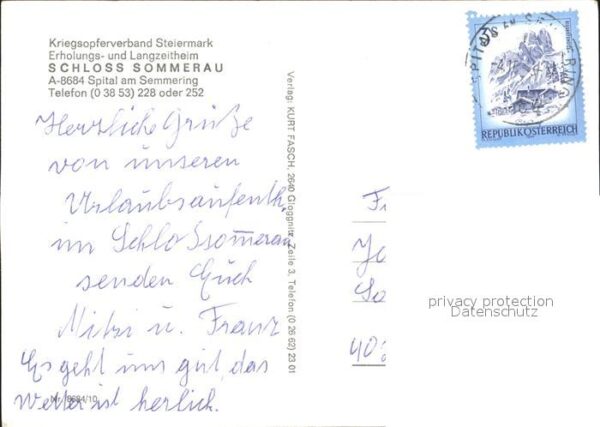 Kriegsopferverband Steiermark
Erholungs- und Langzeitheim
SCHLOSS SOMMERAU
A-8684 Spital am Semmering
Telefon (0 38 53) 228 oder 252
Herzliche Grüße
von unseren
Urlaubsaufenth.
im Schloßsommerau
senden Euch
Mitzi u. Franz
Es geht uns gut, das
Wetter ist herlich.
Nr. 8684/10
Verlag: KURT FASCH, 2640 Gloggnitz, Zeile 3, Telefon (0 26 62) 23 01
REPUBLIK ÖSTERREICH
Fr
Jo
40
privacy protection
Datenschutz